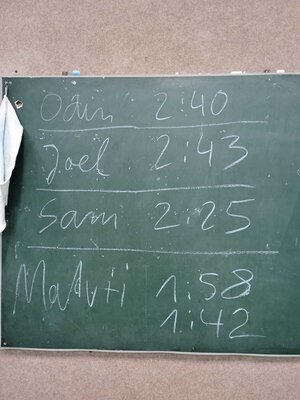 Odin 2:40
Joel 2:43
Sam 2:25
1:58
1:42